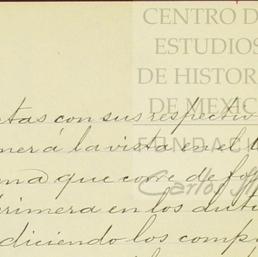 CENTRO D
ESTUDIOS
DE HISTOR
DE MEXIC
FUNDACI
Carlos
tas con sus respectiv
ner á la vista en el
ma que corre de fo
rimera en los
diciendo los comp